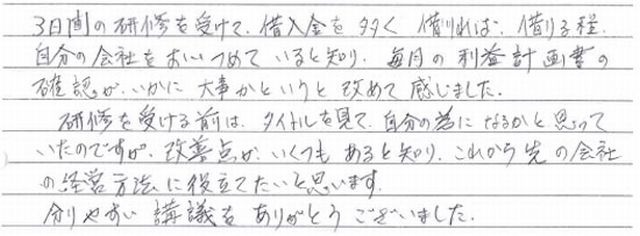 3日間の研修を受けて、借入金を多く借りれば、借りる程、
自分の会社をおいつめていると知り、毎月の利益計画書の
確認が、いかに大事かというと改めて感じました。
研修を受ける前は、タイトルを見て、自分の為になるかと思って
いたのですが、改善点が、いくつもあると知り、これから先の会社
の経営方法に役立てたいと思います。
分りやすい講議をありがとうございました。